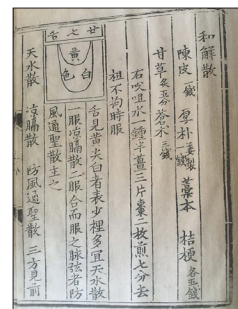 和解散
陳皮一錢 厚朴姜製一錢 藁本 桔梗各五錢
甘草炙五分 蒼朮製五錢
右㕮咀水一鍾半薑三片棗二枚煎七分去
柤不拘時服
甘七舌
黃
白色
舌見黃尖白者表少裡多宜天水散
一服凉膈散二服合而服之脉弦者防
風通聖散主之
天水散 凉膈散 防風通聖散 三方見前